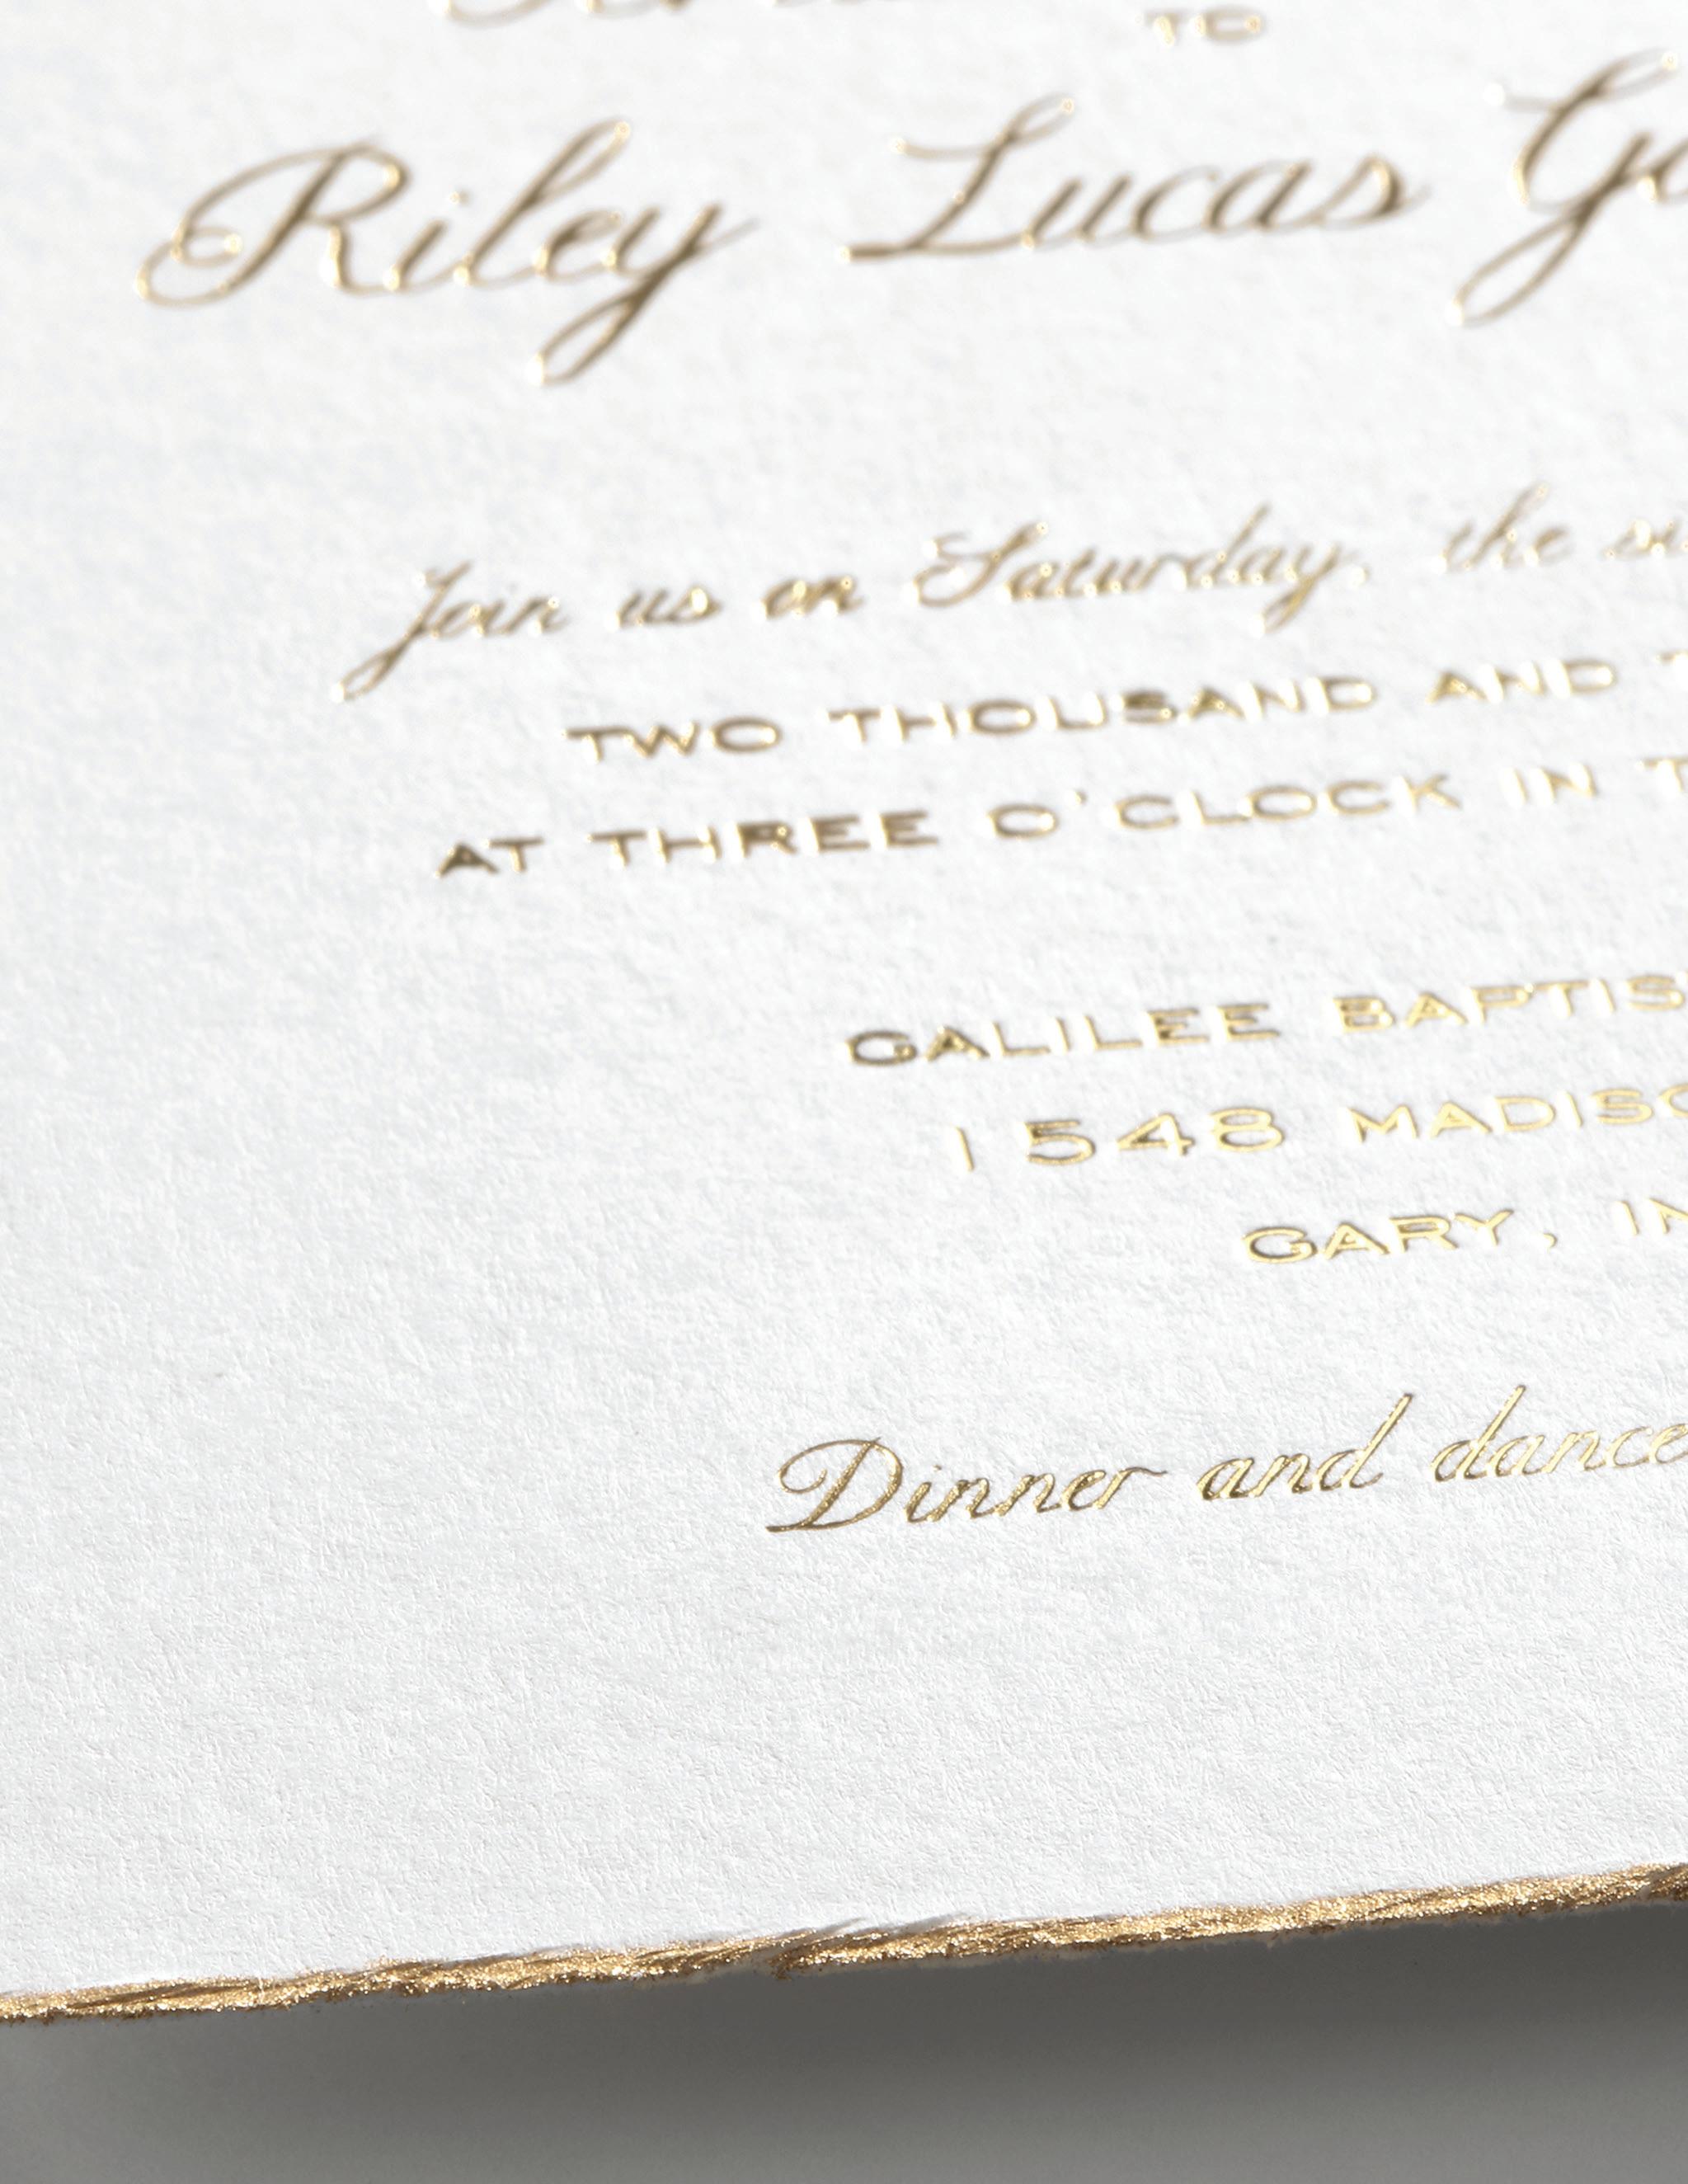 TO
Riley Lucas
Join us on Saturday, the
TWO THOUSAND AND
AT THREE O'CLOCK IN
GALILEE
1548
GARY,
Dinner and